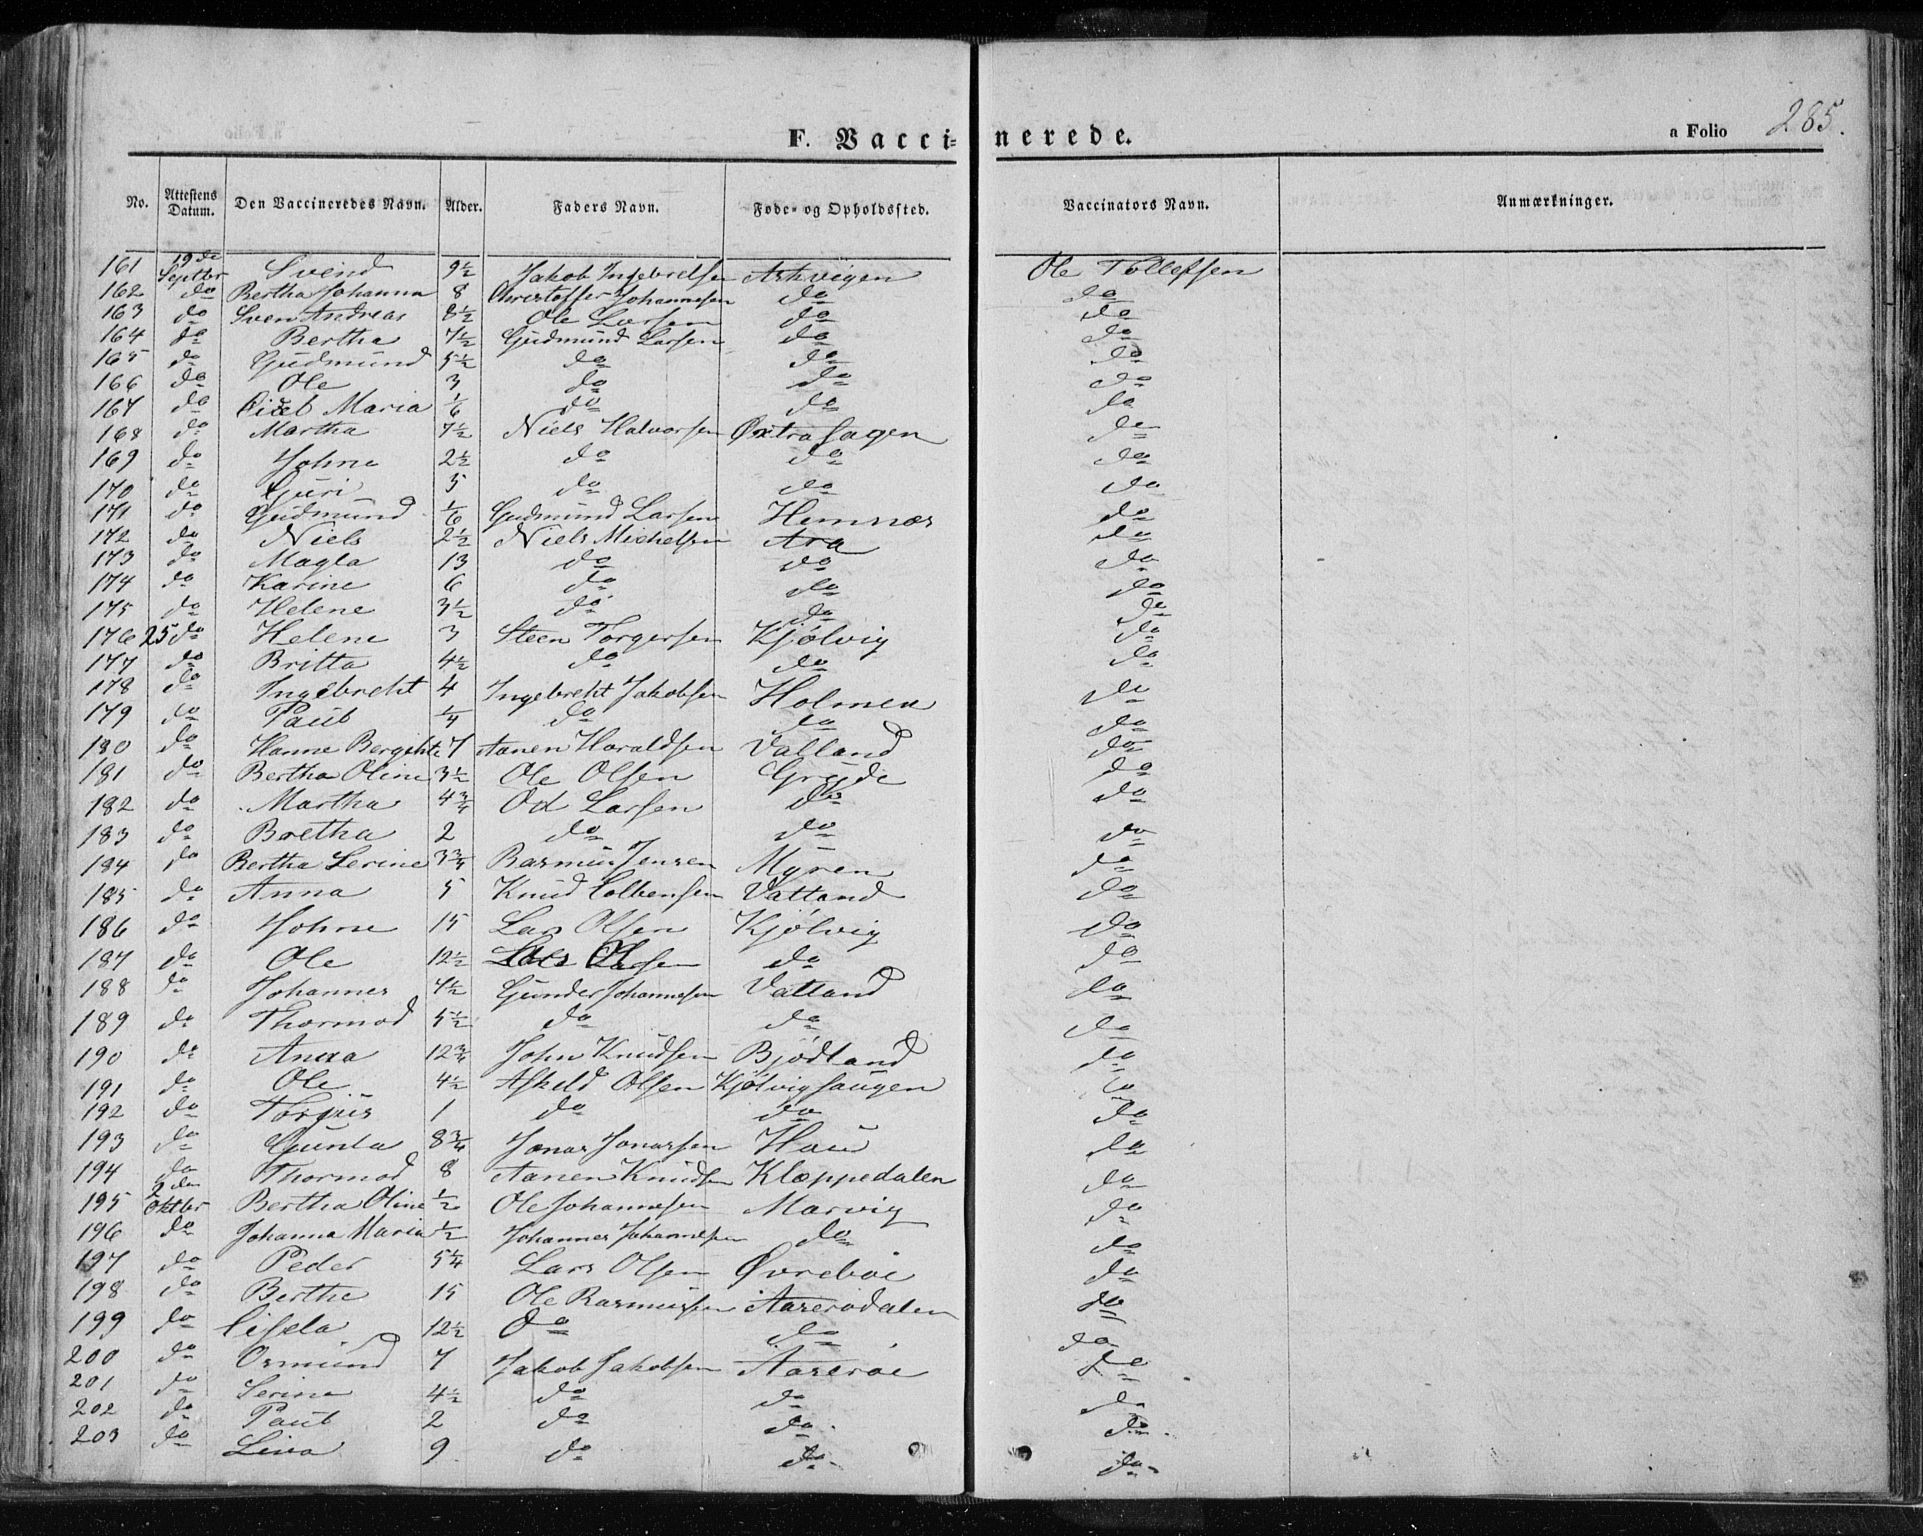 F. Vacci- nerede. a Folio 285.
No. Attestens Datum. Den Vaccineredes Navn. Alder. Faders Navn. Føde- og Opholdssted. Vaccinators Navn. Anmærkninger.
161 19de Septbr Svend 9½ Jakob Ingebretsen Askvigen Ole Tollefsen
162 do Bertha Johanna 8 Christoffer Johannesen do do
163 do Sven Andreas 8½ Ole Larsen do do
164 do Bertha 7½ Gudmund Larsen do do
165 do Gudmund 5½ do do do
166 do Ole 3 do do do
167 do Maria 1/6 do do do
168 do Martha 7½ Niels Halvorsen do
169 do Johne 2½ do do do
170 do Guri 5 do do do
171 do Gudmund 1/6 Gudmund Larsen Hemnæs do
172 do Niels 2½ Niels Michelsen Ara do
173 do Magla 13 do do do
174 do Karine 6 do do do
175 do Helene 3½ do do do
176 25 do Helene 3 Steen Torgersen Kjølvig do
177 do Britta 4½ do do do
178 do Ingebreht 4 Ingebreht Jakobsen Holmen do
179 do Paul ¼ do do do
180 do Hanne Bergithe 7 Aanen Haraldsen Valland do
181 do Bertha Oline 3½ Ole Olsen do
182 do Martha 4¾ Od Larsen do do
183 do Bretha 2 do do do
184 do Bertha Serine 3¾ Rasmus Jensen Myren do
185 do Anna 5 Knud Colbensen Vatland do
186 do Johne 15 Lars Olsen Kjølvig do
187 do Ole 12½ do do
188 do Johannes 7½ Gunder Johannesen Vatland do
189 do Thormod 5½ do do do
190 do Anna 12¾ John Knudsen Bjødland do
191 do Ole 4½ Askeld Olsen Kjølvighaugen do
192 do Torjus 1 do do do
193 do Gunla 8¾ Jonas Jonassen Hau do
194 do Thormod 8 Aanen Knudsen Kleppedalen do
195 2den Oktbr Bertha Oline ½ Ole Johannesen Marvig do
196 do Johanna Maria ½ Johannes Johannesen do do
197 do Peder 5¼ Lars Olsen Øvrebøe do
198 do Berthe 15 Ole Rasmussen Aarerødalen do
199 do Cisela 12½ Do do do
200 do Osmund 7 Jakob Jakobsen Aarerøe do
201 do Serine 4½ do do do
202 do Paul 2 do do do
203 do Lina 9 do do do